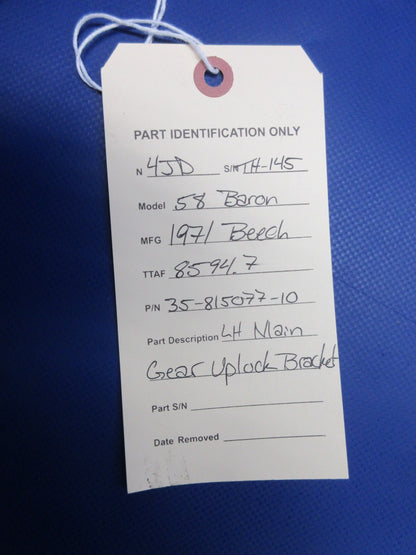 PART IDENTIFICATION ONLY
N 4JD S/N TH-145
Model 58 Baron
MFG 1971 Beech
TTAF 8594.7
P/N 35-815077-10
Part Description LH Main
Gear Uplock Bracket
Part S/N
Date Removed